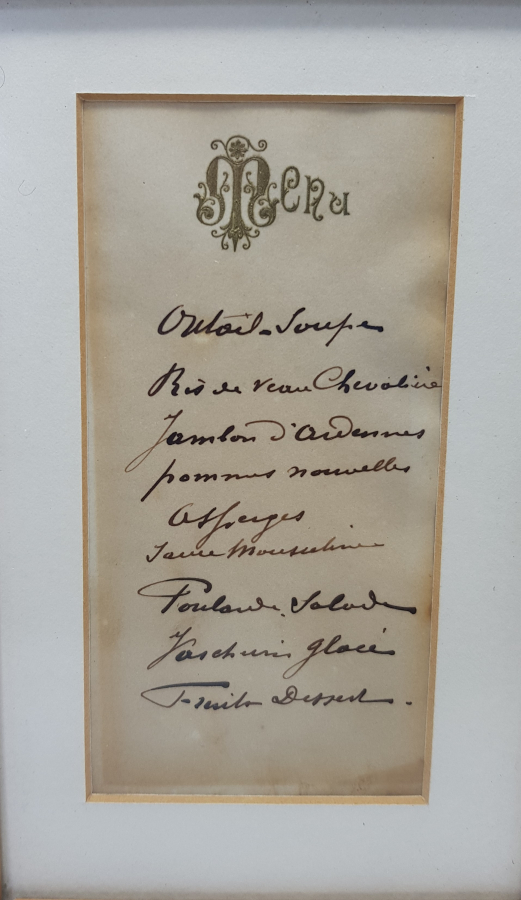 Menu
Oxtail-Soupe
Ris de veau Chevalière
Jambon d'Ardennes
pommes nouvelles
Asperges
Sauce Mousseline
Poularde. Salade
Vacherin glacé
Fruits Dessert.